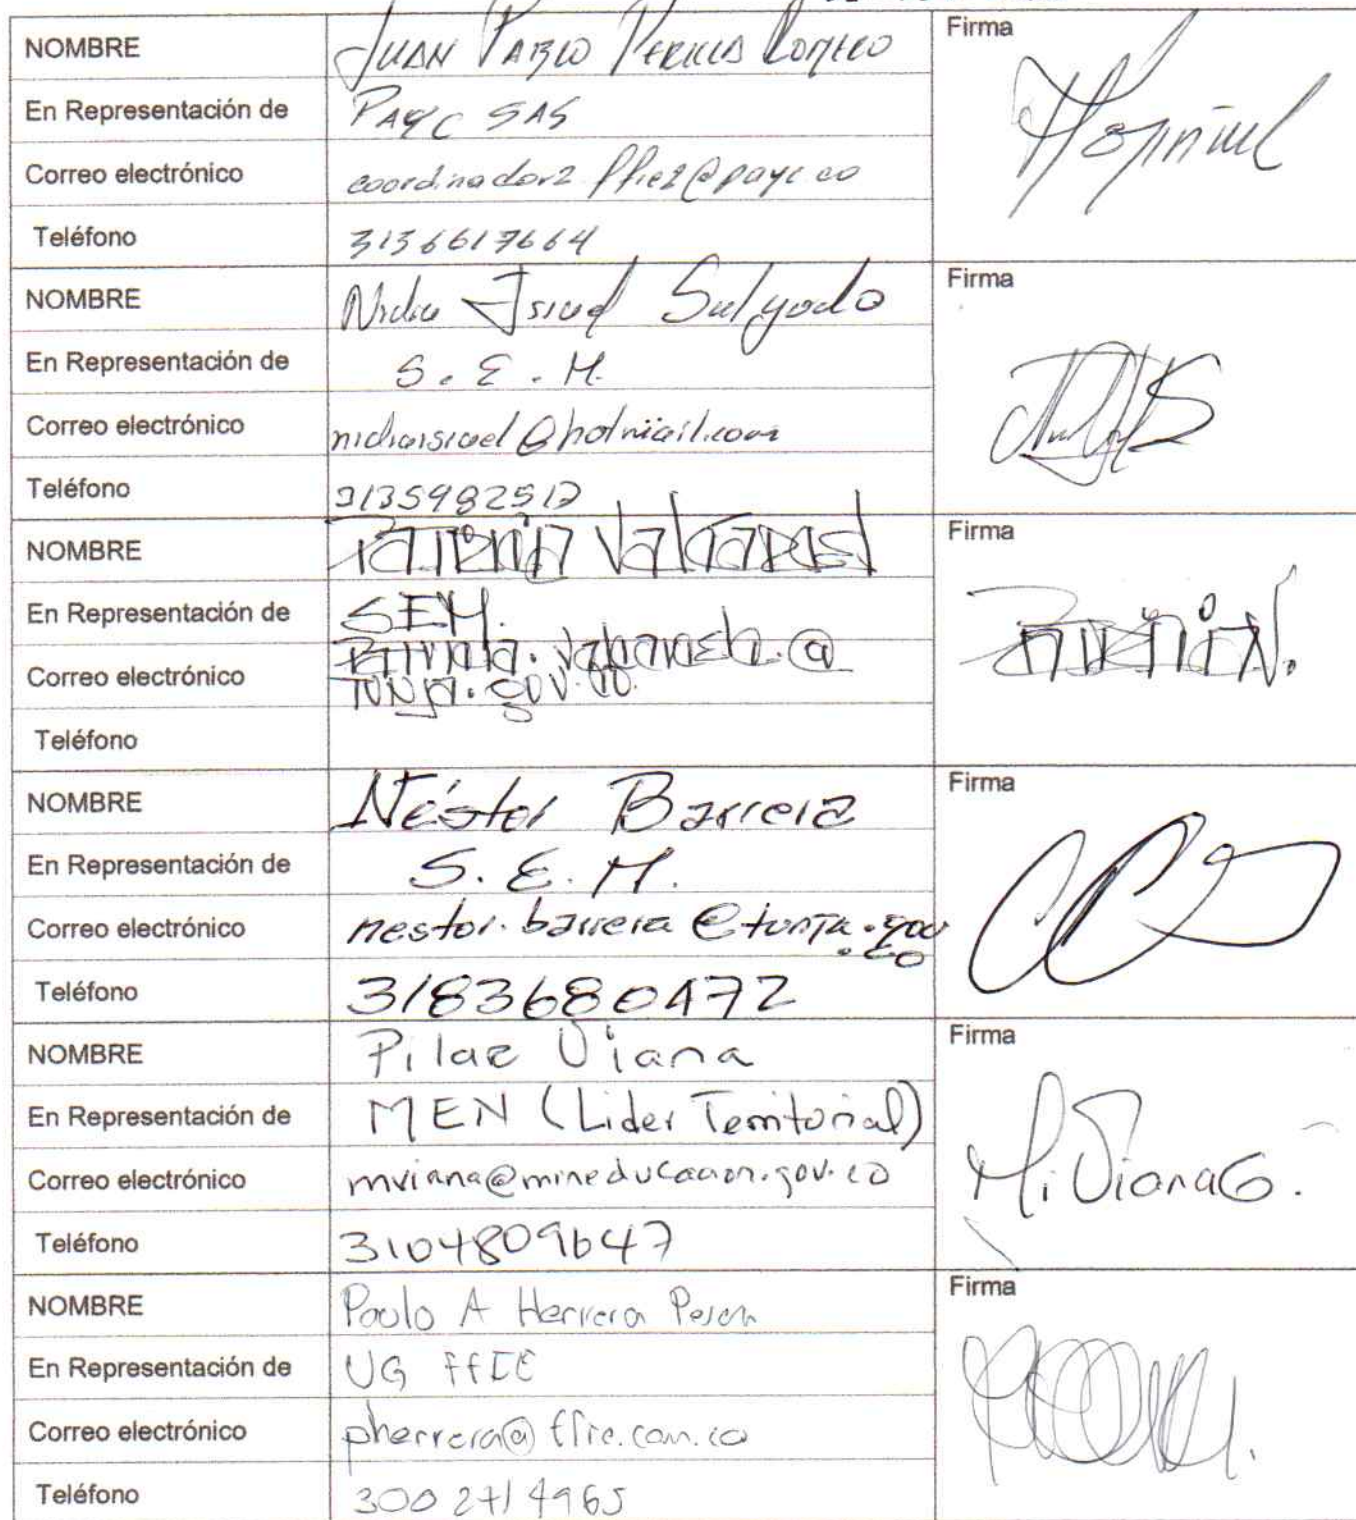 NOMBRE JUAN PABLO PERILLA ROMERO Firma
En Representación de PAYC SAS
Correo electrónico coordinador2.ffie2@payc.co
Teléfono 3136617664
NOMBRE Nidia Isabel Salgado Firma
En Representación de S. E. M.
Correo electrónico @hotmail.com
Teléfono 3135982512
NOMBRE Patricia Firma
En Representación de SEM.
Correo electrónico @
Tunja.gov.co.
Teléfono
NOMBRE Néstor Barrera Firma
En Representación de S. E. M.
Correo electrónico nestor.barrera@tunja.gov
.co
Teléfono 3183680472
NOMBRE Pilar Viana Firma
En Representación de MEN (Lider Territorial)
Correo electrónico mviana@mineducacion.gov.co
Teléfono 3104809647
NOMBRE Paulo A Herrera Firma
En Representación de UG FFIE
Correo electrónico pherrera@ffie.com.co
Teléfono 300 2714965